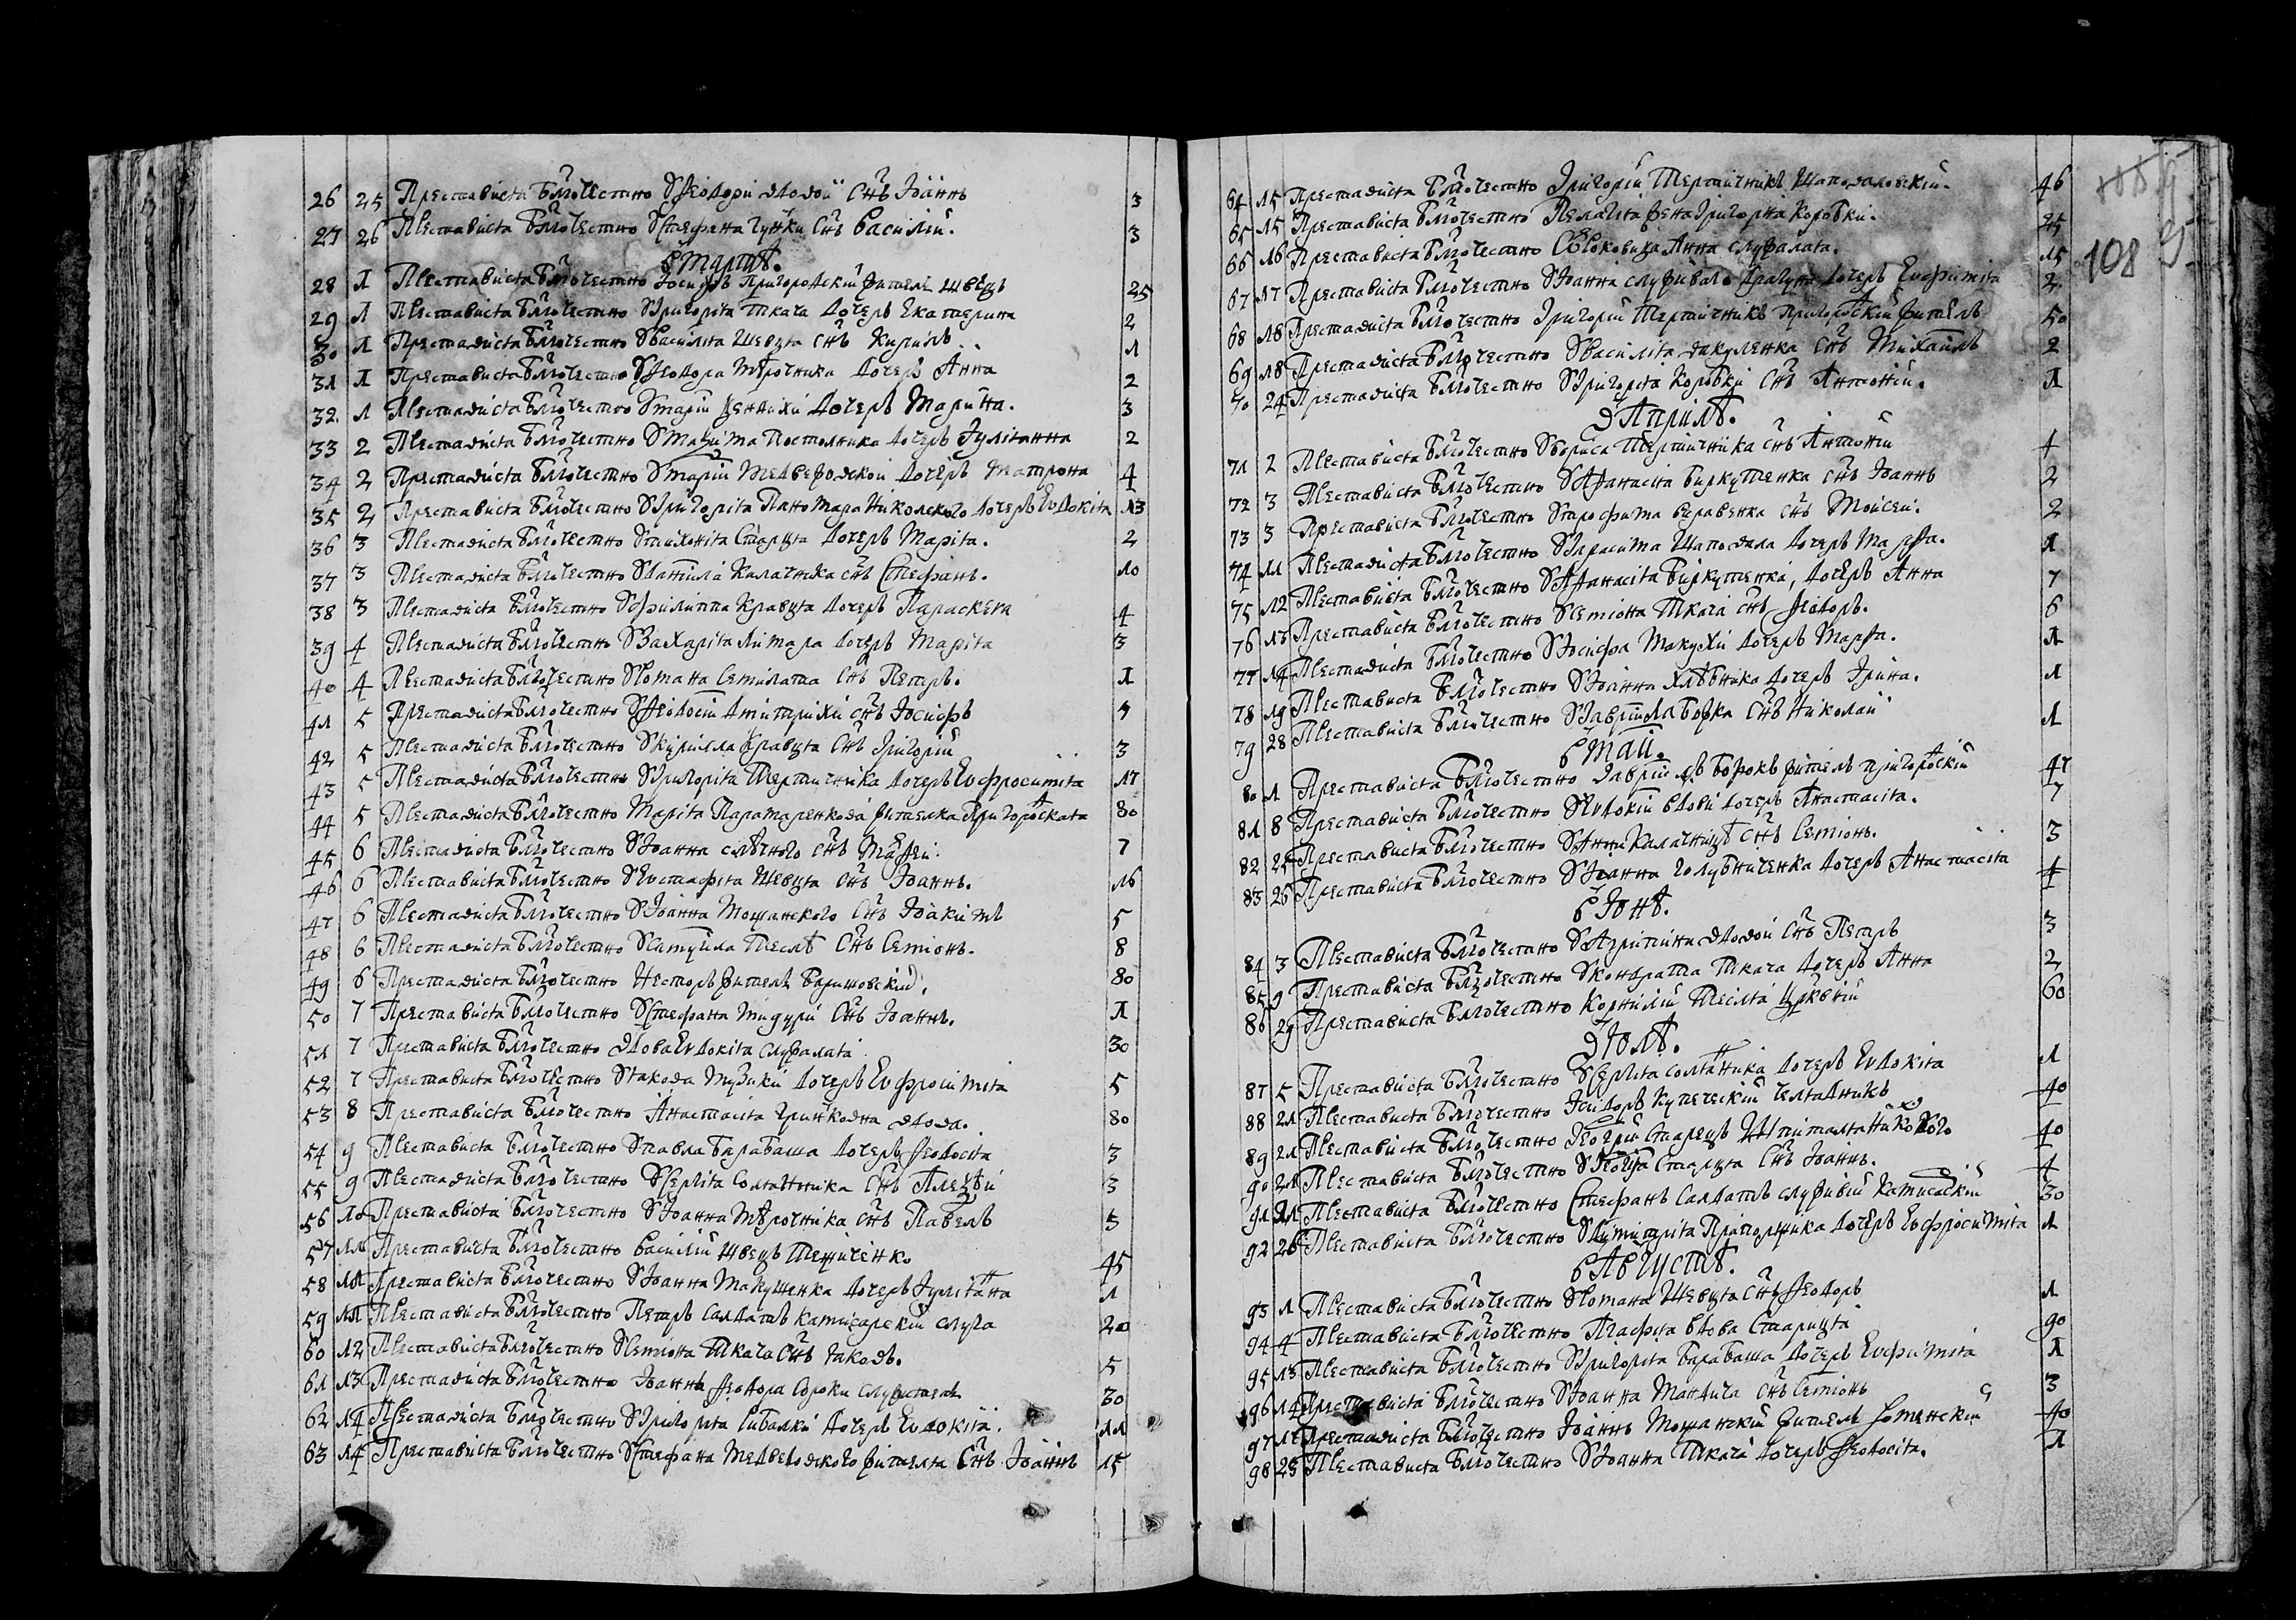 26 25 Преставися Блгочестно Ѿ Ѳеодори вдовои Снъ Іоаннъ 3
27 26 Преставися Блгочестно Ѿ Стефана Снъ Василій. 3
В Мартѣ.
28 1 Преставися Блгочестно Іосифъ Пригородскій житель швецъ 25
29 1 Преставися Блгочестно Ѿ Григорія ткача дочерь Екатерина 2
30 1 Преставися Блгочестно Ѿ Василія Шевца снъ Кирилъ. 1
31 1 Преставися Блгочестно Ѿ Ѳеодора Мѣрочника дочерь Анна 2
32. 1 Преставися Блгочестно Ѿ Маріи дочерь Марина. 3
33 2 Преставися Блгочестно Ѿ Маѯима Постолника дочерь Іуліанна 2
34 2 Преставися Блгочестно Ѿ Маріи Медвефовской дочерь Матрона 4
35 2 Преставися Блгочестно Ѿ Григорія Паномаря Николского дочерь Евдокія 13
36 3 Преставися Блгочестно Ѿ Тихонія Старца дочерь Марія. 2
37 3 Преставися Блгочестно Ѿ Даніила Калачника снъ Стефанъ. 10
38 3 Преставися Блгочестно Ѿ Филиппа Кравца дочерь Параскева 4
39 4 Преставися Блгочестно Ѿ Захарія Лимара дочерь Марія 3
40 4 Преставися Блгочестно Ѿ Романа Семилата Снъ Петръ. 1
41 5 Преставися Блгочестно Ѿ Ѳеодосіи Дмитрихи снъ Іосифъ 4
42 5 Преставися Блгочестно Ѿ Кирилла Кравца Снъ Григорій 3
43 5 Преставися Блгочестно Ѿ Григорія Терпичника дочерь Евфросимія 17
44 5 Преставися Блгочестно Марія Паратаренкова жителка Пригородская 80
45 6 Преставися Блгочестно Ѿ Іоанна слѣпого снъ Маѳей. 7
46 6 Преставися Блгочестно Ѿ Евстафія Шевца снъ Іоаннъ. 16
47 6 Преставися Блгочестно Ѿ Іоанна Мошанского Снъ Іоакимъ 5
48 6 Преставися Блгочестно Ѿ Самуйла Теслѣ Снъ Семіонъ. 8
49 6 Преставися Блгочестно Несторъ житель Баришовскій. 80
50 7 Преставися Блгочестно Ѿ Стефана Мидури Снъ Іоаннъ. 1
51 7 Преставися Блгочестно вдова Евдокія служалая 30
52 7 Преставися Блгочестно Ѿ Іакова Музики дочерь Евфросімія 5
53 8 Преставися Блгочестно Анастасія Гринковна вдова. 80
54 9 Преставися Блгочестно Ѿ Павла Барабаша дочерь Ѳеодосія 3
55 9 Преставися Блгочестно Ѿ Сергія Солтанника Снъ Алеѯѣй 3
56 10 Преставися Блгочестно Ѿ Іоанна Мѣрочника снъ Павелъ 5
57 11 Преставися Блгочестно Василій Швецъ 45
58 11 Преставися Блгочестно Ѿ Іоанна Макушенка дочерь Іуліанна 1
59 11 Преставися Блгочестно Петръ Салдатъ камисарскій слуга 20
60 12 Преставися Блгочестно Ѿ Семіона Ткача Снъ Іаковъ. 5
61 13 Преставися Блгочестно Іоаннъ Ѳеодора Сороки служитель 30
62 14 Преставися Блгочестно Ѿ Григорія Рибалки дочерь Евдокія. 11
63 14 Преставися Блгочестно Ѿ Стефана Медведовского жителя Снъ Іоаннъ 15
64 15 Преставися Блгочестно Григорій Терпичникъ Шаповаловскій. 46
65 15 Преставися Блгочестно Пелагія жена Григорія Коробки. 45
66 16 Преставися Блгочестно Анна служалая. 15
67 17 Преставися Блгочестно Ѿ Іоанна служивого драгуна дочерь Евфимія 2
68 18 Преставися Блгочестно Григорій Терпичникъ Пригородскій житель 50
69 18 Преставися Блгочестно Ѿ Василія Вакуленка Снъ Михаилъ 2
70 24 Преставися Блгочестно Ѿ Григорія Коробки Снъ Антоній. 1
В Априлѣ.
71 2 Преставися Блгочестно Ѿ Бориса Терпичника снъ Антоній 4
72 3 Преставися Блгочестно Ѿ Афанасія Биркутенка снъ Іоаннъ 2
73 3 Преставися Блгочестно Ѿ Трофима снъ Мойсей. 2
74 11 Преставися Блгочестно Ѿ Гарасима Шаповала дочерь Марѳа. 1
75 12 Преставися Блгочестно Ѿ Афанасія Биркутенка, дочерь Анна 7
76 13 Преставися Блгочестно Ѿ Семіона Ткача снъ Ѳеодоръ. 6
77 14 Преставися Блгочестно Ѿ Іосифа Макухи дочерь Марѳа. 1
78 19 Преставися Блгочестно Ѿ Іоанна Хлѣбника дочерь Ірина. 1
79 28 Преставися Блгочестно Ѿ Гавріила Божка Снъ Николай 1
В Маи.
80 1 Преставися Блгочестно Гавріилъ Божокъ житель пригородскій 47
81 8 Преставися Блгочестно Ѿ Евдокіи вдови дочерь Анастасія. 7
82 24 Преставися Блгочестно Ѿ Анни Калачницѣ снъ Семіонъ. 3
83 25 Преставися Блгочестно Ѿ Іоанна Голубниченка дочерь Анастасія 4
В Іюнѣ.
84 3 Преставися Блгочестно Ѿ Агрипини вдовои Снъ Петръ 3
85 9 Преставися Блгочестно Ѿ Кондрата Ткача дочерь Анна 2
86 29 Преставися Блгочестно Корнилій Тесля Црквній 60
В Іюлѣ.
87 5 Преставися Блгочестно Ѿ Сергія солтанника дочерь Евдокія 1
88 21 Преставися Блгочестно Ісидоръ купеческій челядникъ 40
89 21 Преставися Блгочестно Георгій старецъ Шпиталя Николского 40
90 21 Преставися Блгочестно Ѿ Георгія Старца Снъ Іоаннъ. 4
91 21 Преставися Блгочестно Стефанъ Салдатъ служивій камисарскій 30
92 26 Преставися Блгочестно Ѿ Димитрія Прапорщика дочерь Евфросимія 1
В Августѣ.
93 1 Преставися Блгочестно Ѿ Романа Шевца снъ Ѳеодоръ 1
94 4 Преставися Блгочестно Агафія вдова Старица 90
95 13 Преставися Блгочестно Ѿ Григорія Барабаша дочерь Евфимія 1
96 14 Преставися Блгочестно Ѿ Іоанна Мандича снъ Семіонъ 3
97 17 Преставися Блгочестно Іоаннъ Мошанскій житель 40
98 28 Преставися Блгочестно Ѿ Іоанна Ткача дочерь Ѳеодосія. 1
108